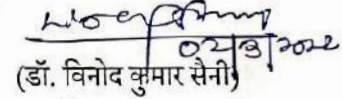 02/3/2022
(डॉ. विनोद कुमार सैनी)